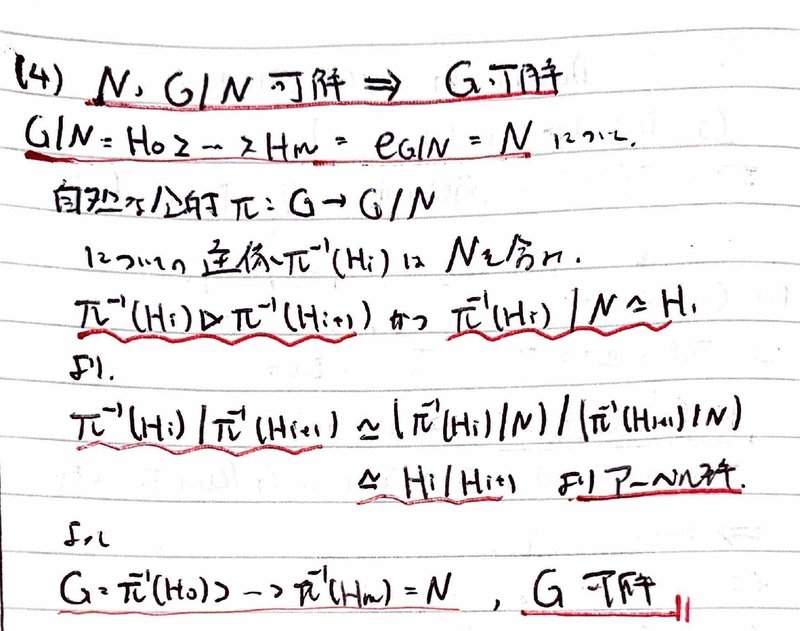 (4) N, G/N 可解 ⇒ G 可解
G/N = H₀ ≥ … ≥ Hm = eG/N = N について、
自然な全射 π: G → G/N
についての逆像 π⁻¹(Hi) は Nを含み.
π⁻¹(Hi) ▷ π⁻¹(Hi+1) かつ π⁻¹(Hi) / N ≃ Hi
より.
π⁻¹(Hi) / π⁻¹(Hi+1) ≃ (π⁻¹(Hi)/N) / (π⁻¹(Hi+1)/N)
≃ Hi/Hi+1 よりアーベル群.
よって
G = π⁻¹(H₀) > … > π⁻¹(Hm) = N , G 可解